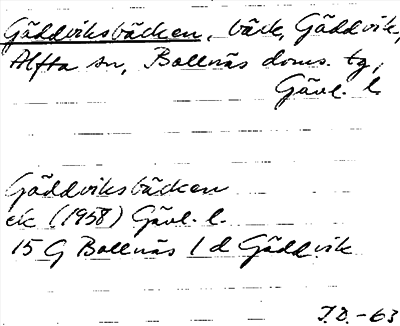 Gäddviksbäcken, bäck, Gäddvik,
Alfta sn, Bollnäs doms. tg,
Gävl. l.
Gäddviksbäcken
ek (1958) Gävl. l.
15 G Bollnäs 1 d Gäddvik
T.D. -63